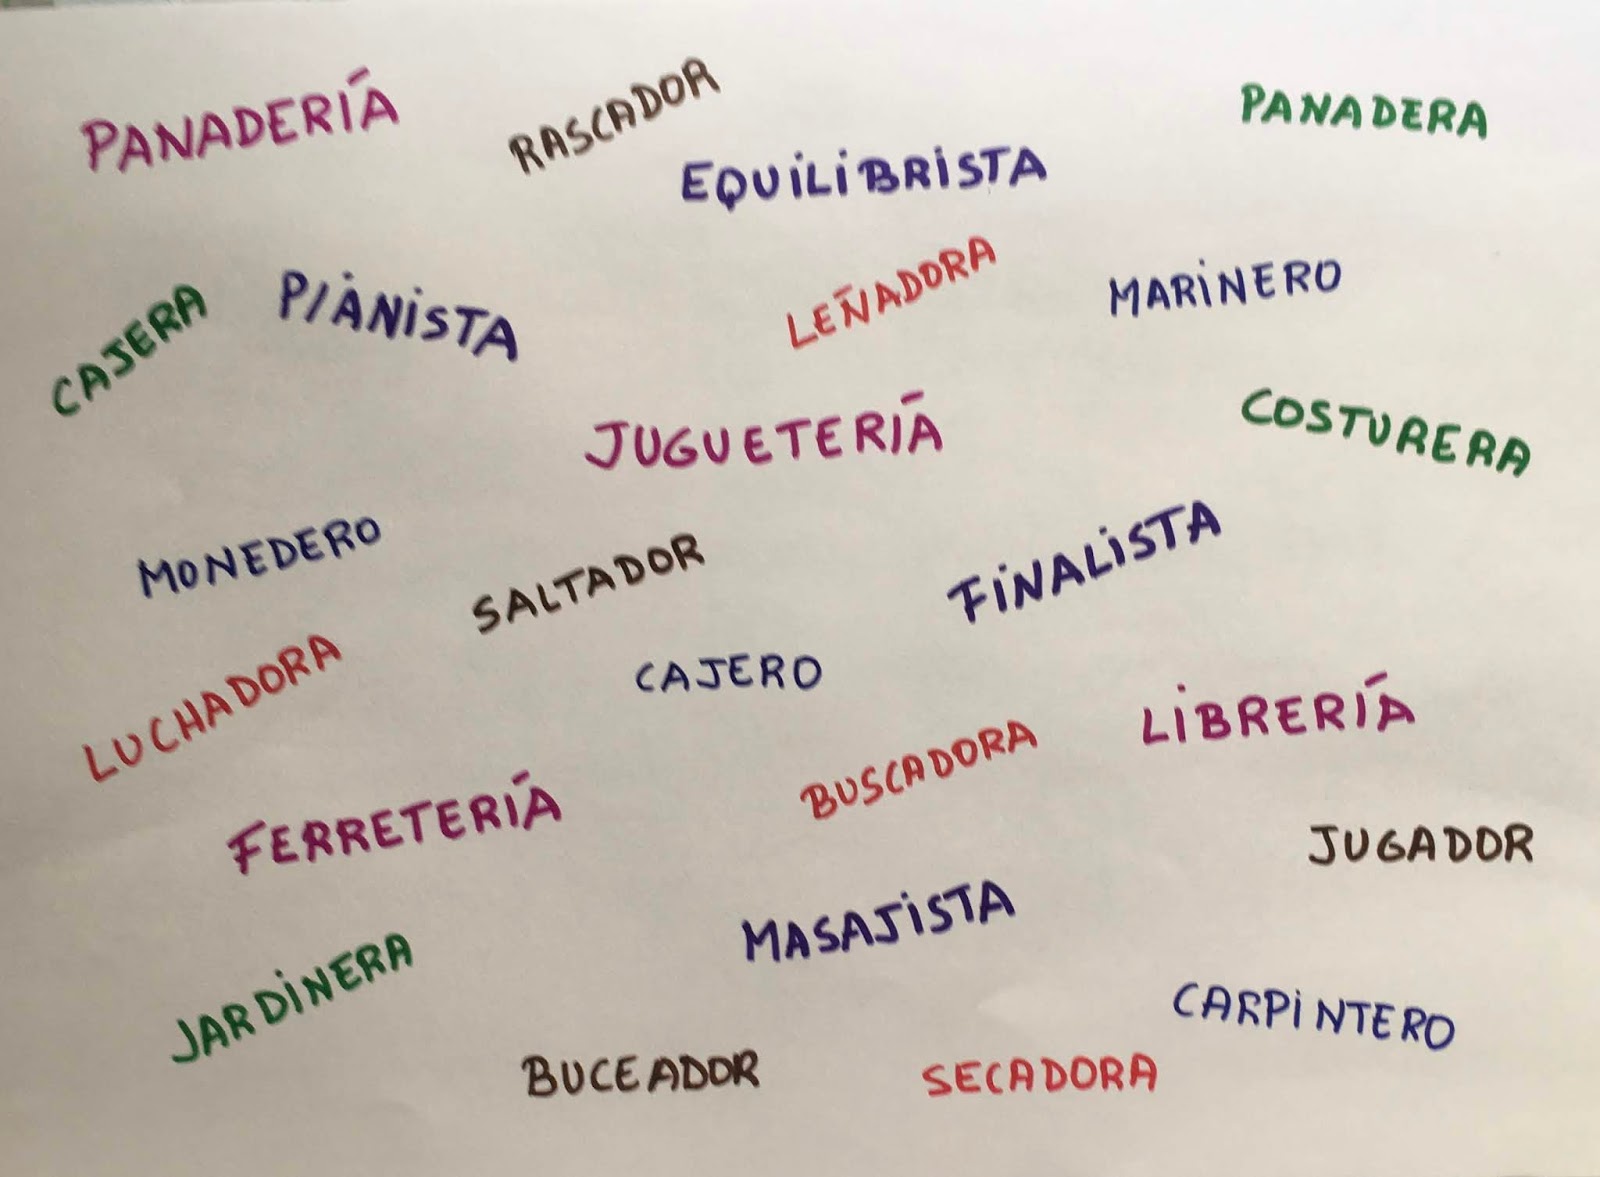 PANADERÍA
RASCADOR
PANADERA
EQUILIBRISTA
CAJERA
PIANISTA
LEÑADORA
MARINERO
JUGUETERÍA
COSTURERA
MONEDERO
SALTADOR
FINALISTA
LUCHADORA
CAJERO
LIBRERÍA
BUSCADORA
FERRETERÍA
JUGADOR
MASAJISTA
JARDINERA
CARPINTERO
BUCEADOR
SECADORA